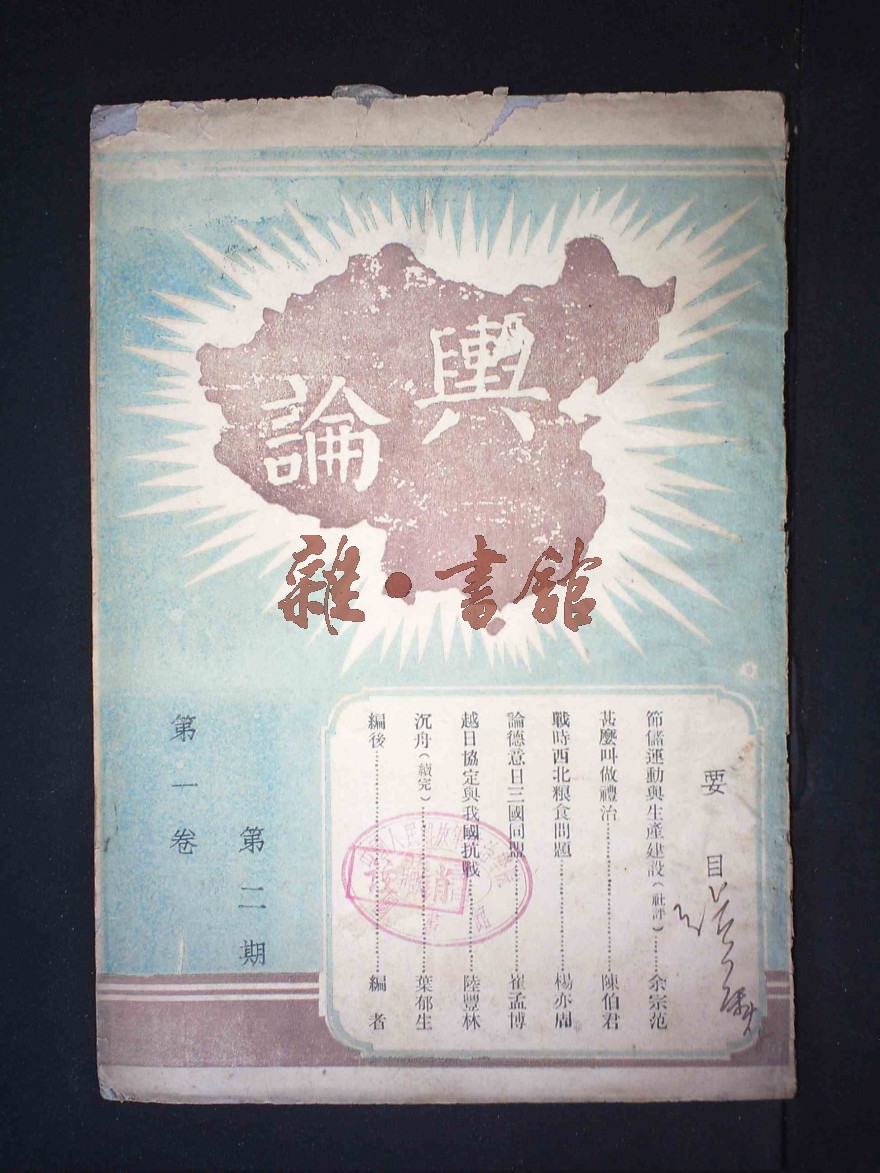 輿論
雜·書館
要目
節儲運動與生產建設(社評)……余宗范
甚麼叫做禮治……陳伯君
戰時西北粮食問題……楊亦周
論德意日三國同盟……崔孟博
越日協定與我國抗戰……陸豐林
沉舟(續完)……葉郁生
編後……編者
第二期
第一卷